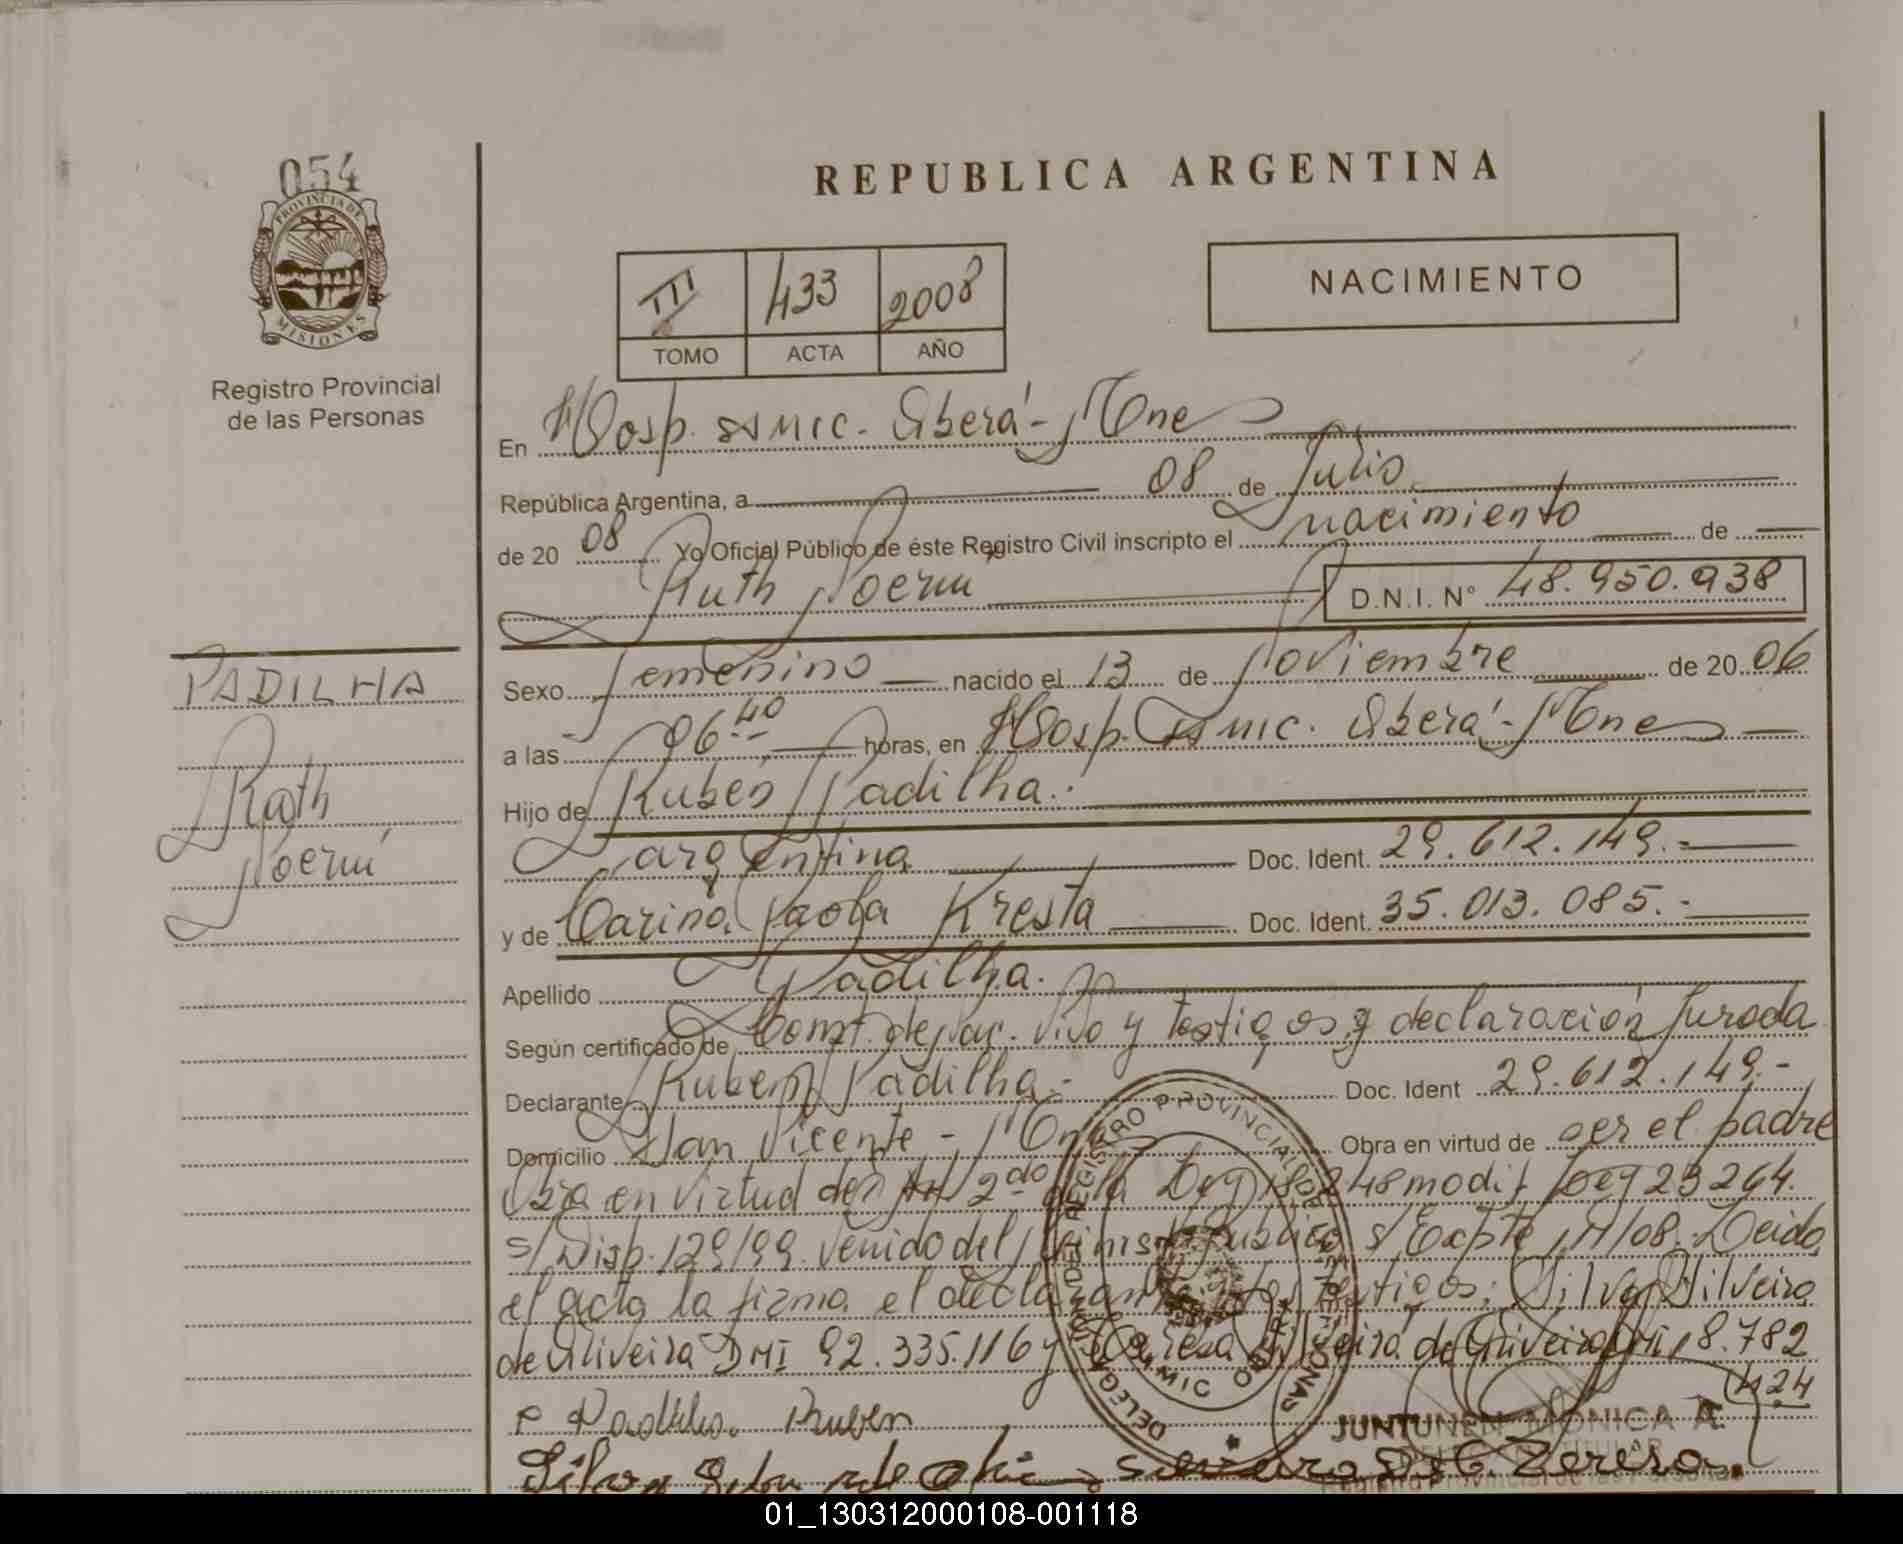 054
PROVINCIA DE
MISIONES
Registro Provincial
de las Personas
REPUBLICA ARGENTINA
III 433 2008
TOMO ACTA AÑO
NACIMIENTO
En Hosp. SAMIC. Oberá - Mnes
República Argentina, a 08 de Julio
de 20 08 Yo Oficial Público de éste Registro Civil inscripto el nacimiento de
Ruth Noemí D.N.I. N° 48.950.938
PADILHA
Ruth
Noemí
Sexo femenino nacido el 13 de Noviembre de 20 06
a las 06 40 horas, en Hosp. Samic. Oberá - Mnes
Hijo de Rubén Padilha.
argentina Doc. Ident. 29.612.149.-
y de Carina Paola Kresta Doc. Ident. 35.013.085.-
Apellido Padilha.
Según certificado de Const. de Nac. Vivo y Testigos y declaración Jurada
Declarante Ruben Padilha.- Doc. Ident 29.612.149.-
Domicilio San Vicente - Mnes Obra en virtud de ser el padre
Obra en virtud del Art 2do de la Ley 18248 modif Ley 23264.
s/ Disp. 129/99. Venido del Minist. Publico s/ Expte /08. Leido
el acta la firma el declarante y los testigos: Silva Silveira
de Oliveira DNI 92.335.116 y Teresa Silveira de Oliveira DNI 18.782
424
Padilha Ruben
JUNTUNEN MONICA A.
DELEGA TITULAR
Registro Provincial de las Personas
DELEGACION DEL REGISTRO PROVINCIAL DE LAS PERSONAS
SAMIC OBERA
01_130312000108-001118